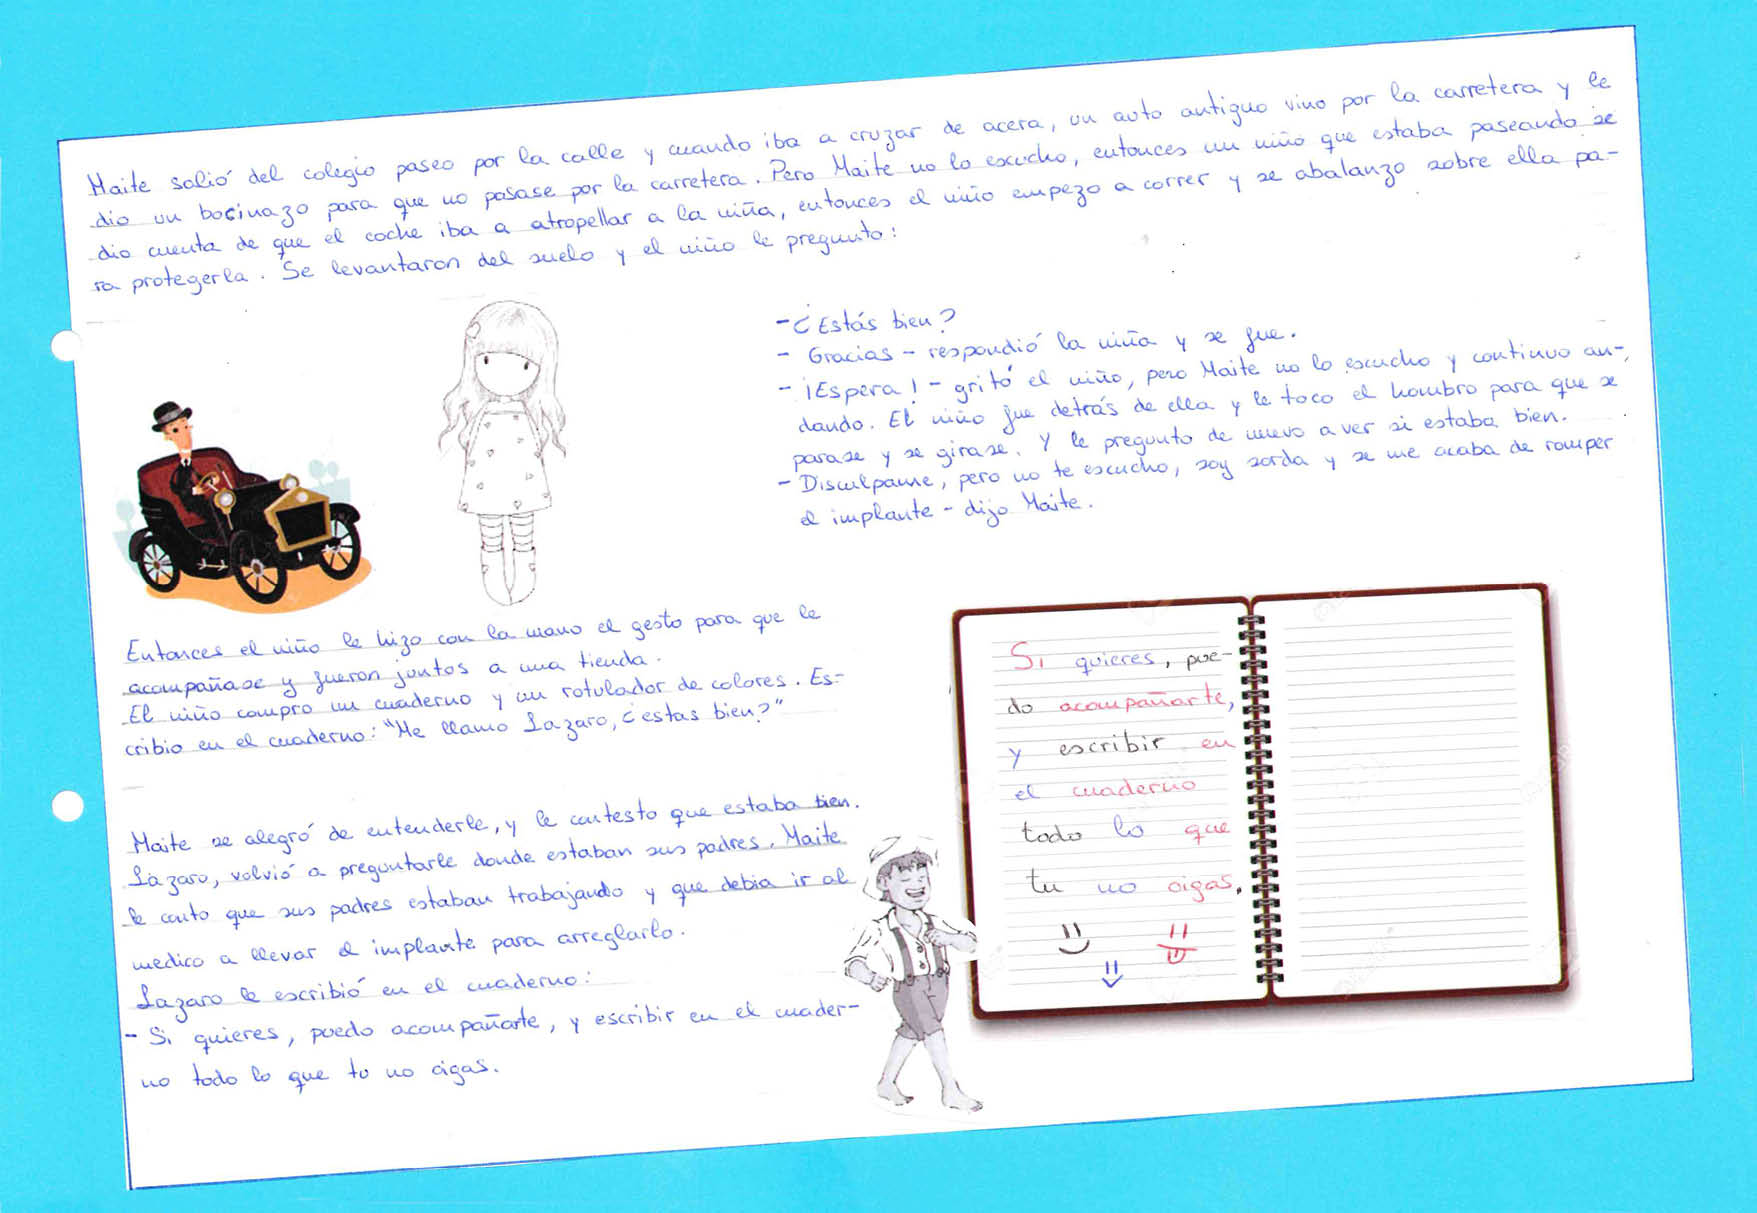 Maite salió del colegio paseo por la calle y cuando iba a cruzar de acera, un auto antiguo vino por la carretera y le
dio un bocinazo para que no pasase por la carretera. Pero Maite no lo escucho, entonces un niño que estaba paseando se
dio cuenta de que el coche iba a atropellar a la niña, entonces el niño empezo a correr y se abalanzo sobre ella pa-
ra protegerla. Se levantaron del suelo y el niño le pregunto:
- ¿Estás bien?
- Gracias - respondió la niña y se fue.
- ¡Espera! - gritó el niño, pero Maite no lo escucho y continuo an-
dando. El niño fue detrás de ella y le toco el hombro para que se
parase y se girase. Y le pregunto de nuevo a ver si estaba bien.
- Disculpame, pero no te escucho, soy sorda y se me acaba de romper
el implante - dijo Maite.
Entonces el niño le hizo con la mano el gesto para que le
acompañase y fueron juntos a una tienda.
El niño compro un cuaderno y un rotulador de colores. Es-
cribio en el cuaderno: "Me llamo Lazaro, ¿estas bien?"
Maite se alegró de entenderle, y le contesto que estaba bien.
Lázaro, volvió a preguntarle donde estaban sus padres. Maite
le conto que sus padres estaban trabajando y que debia ir al
medico a llevar el implante para arreglarlo.
Lazaro le escribió en el cuaderno:
- Si quieres, puedo acompañarte, y escribir en el cuader-
no todo lo que tu no oigas.
Si quieres, pue-
do acompañarte,
y escribir en
el cuaderno
todo lo que
tu no oigas.